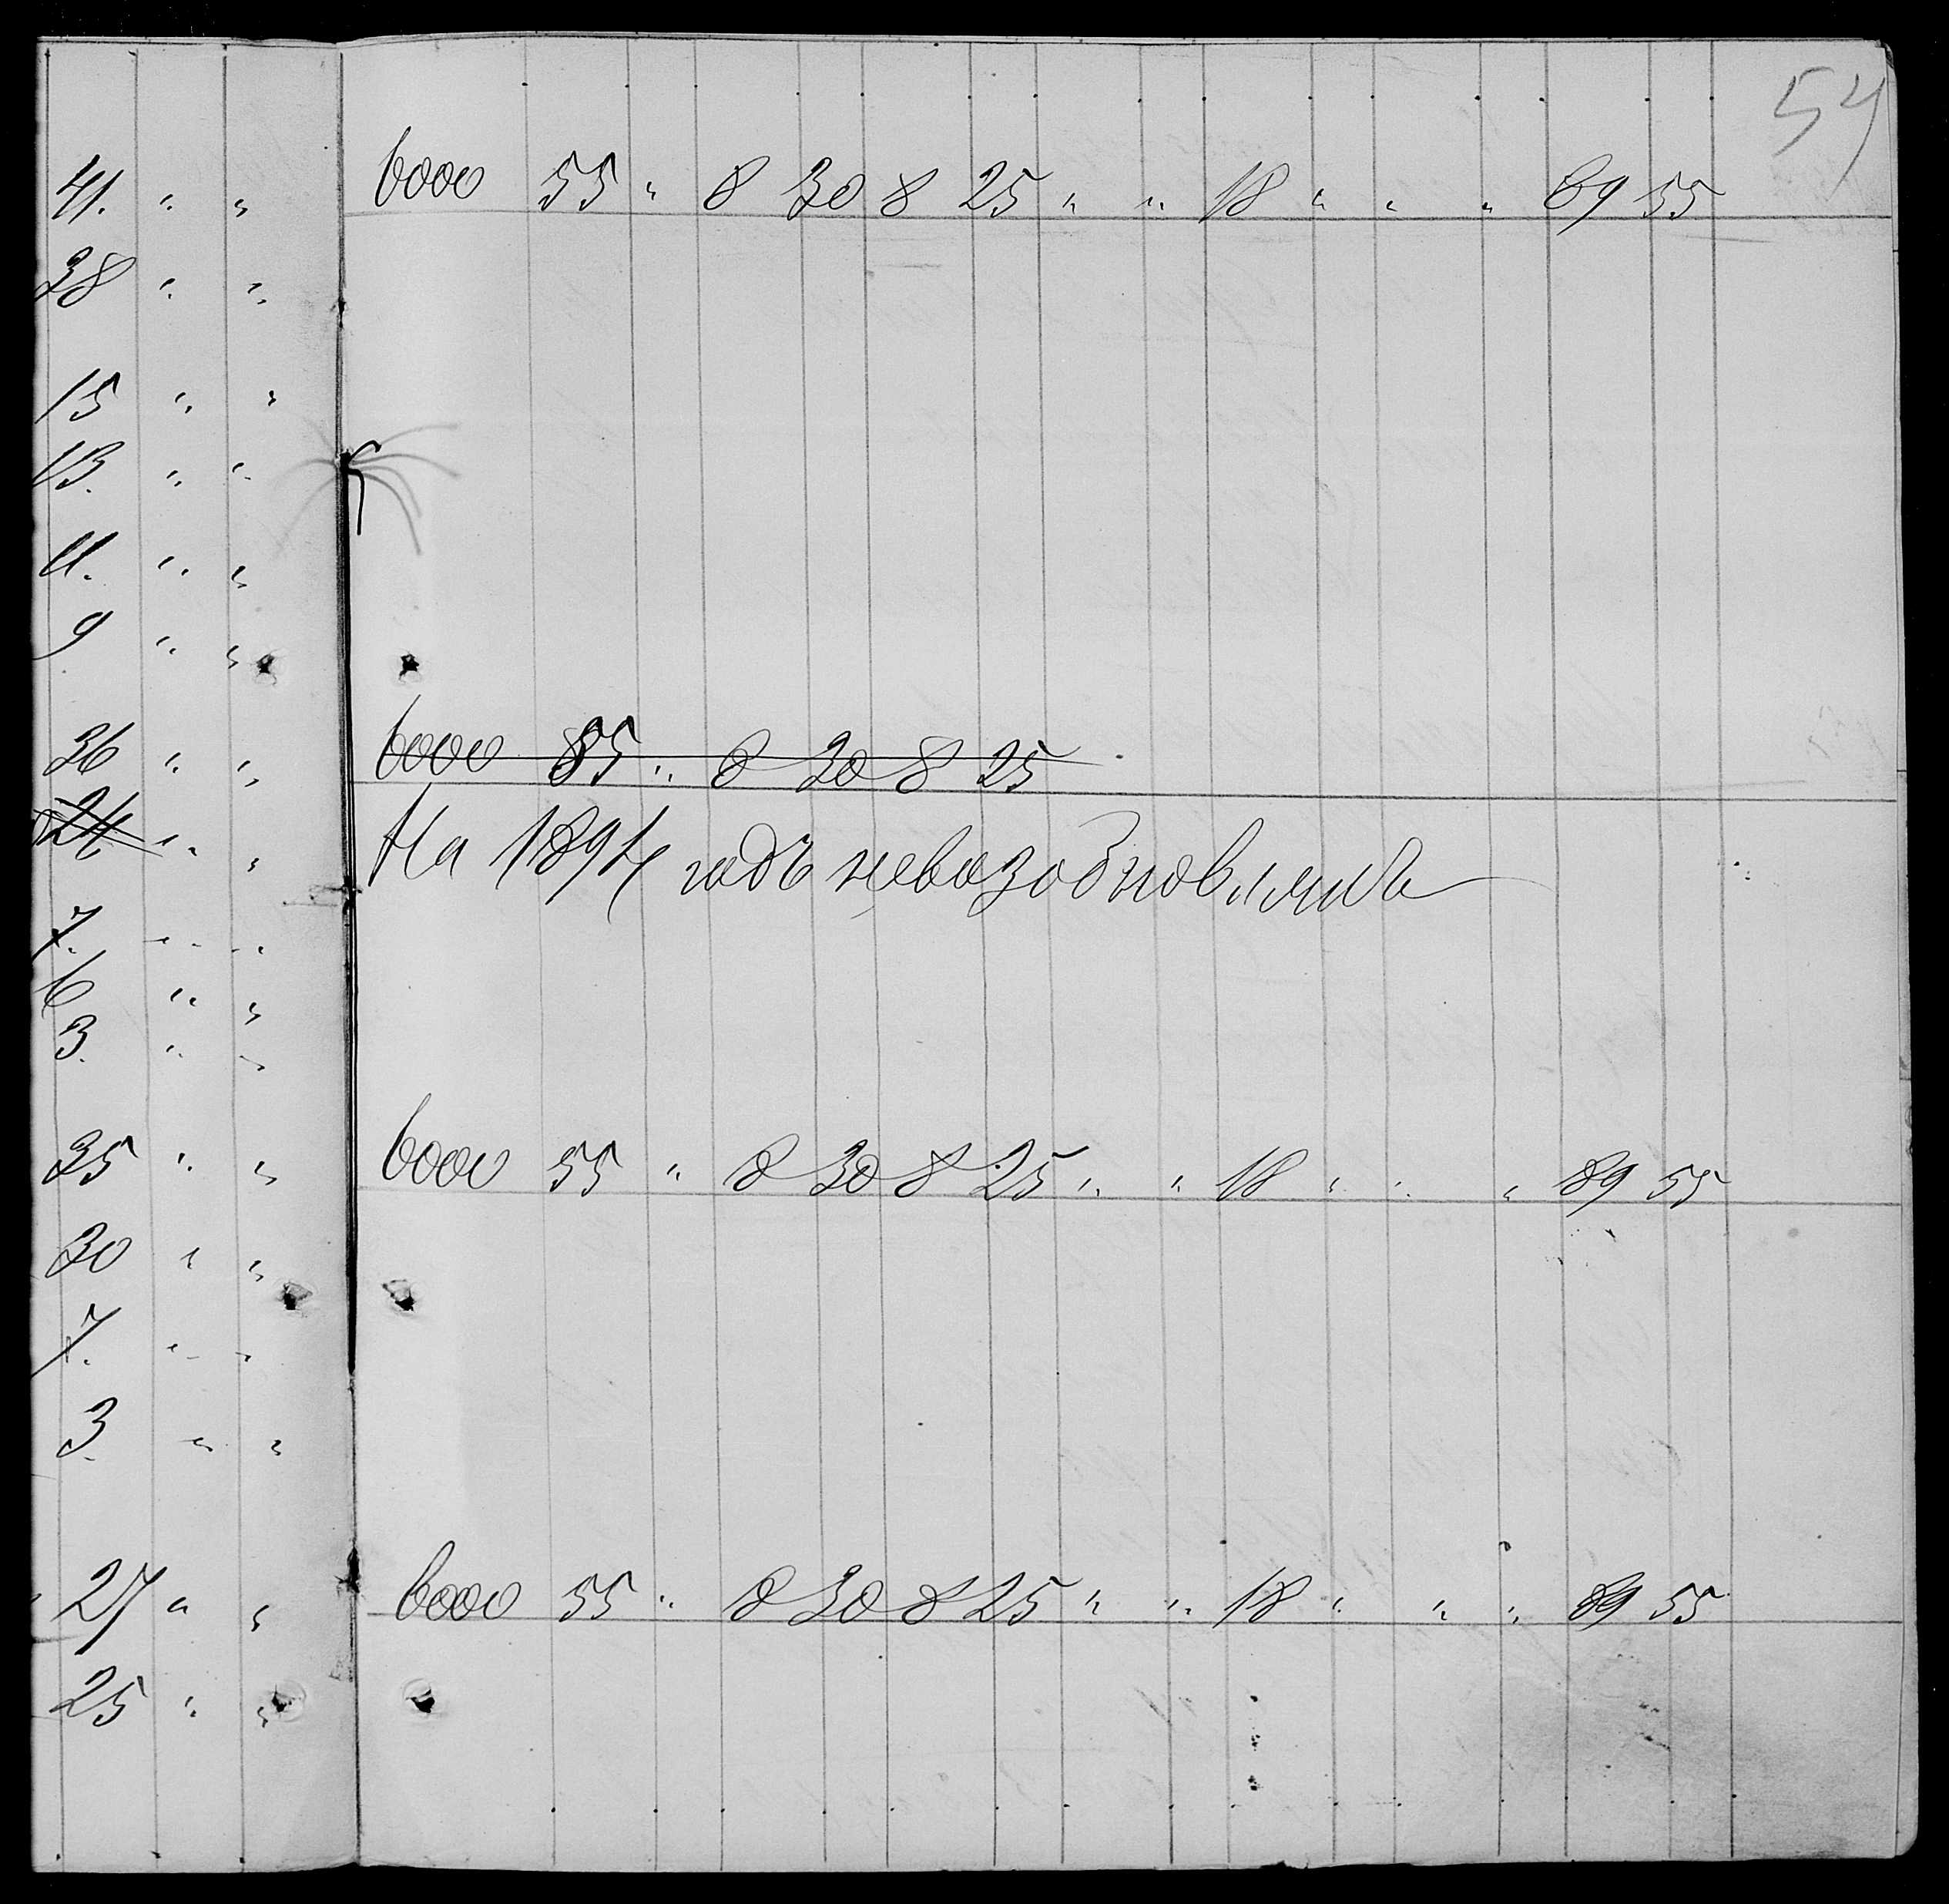 54
41. " " 6000 55 " 8 30 8 25 " " 18 " " " 89 55
38 " "
15 " "
13. " "
11. " "
9 " "
36 " " 6000 55 " 8 30 8 25
24 " "
На 1894 годъ невозобновлялъ
7. " "
6 " "
3. " "
35 " " 6000 55 " 8 30 8 25 " " 18 " " " 89 55
30 " "
7. " "
3. " "
27 " " 6000 55 " 8 30 8 25 " " 18 " " " 89 55
25 " "